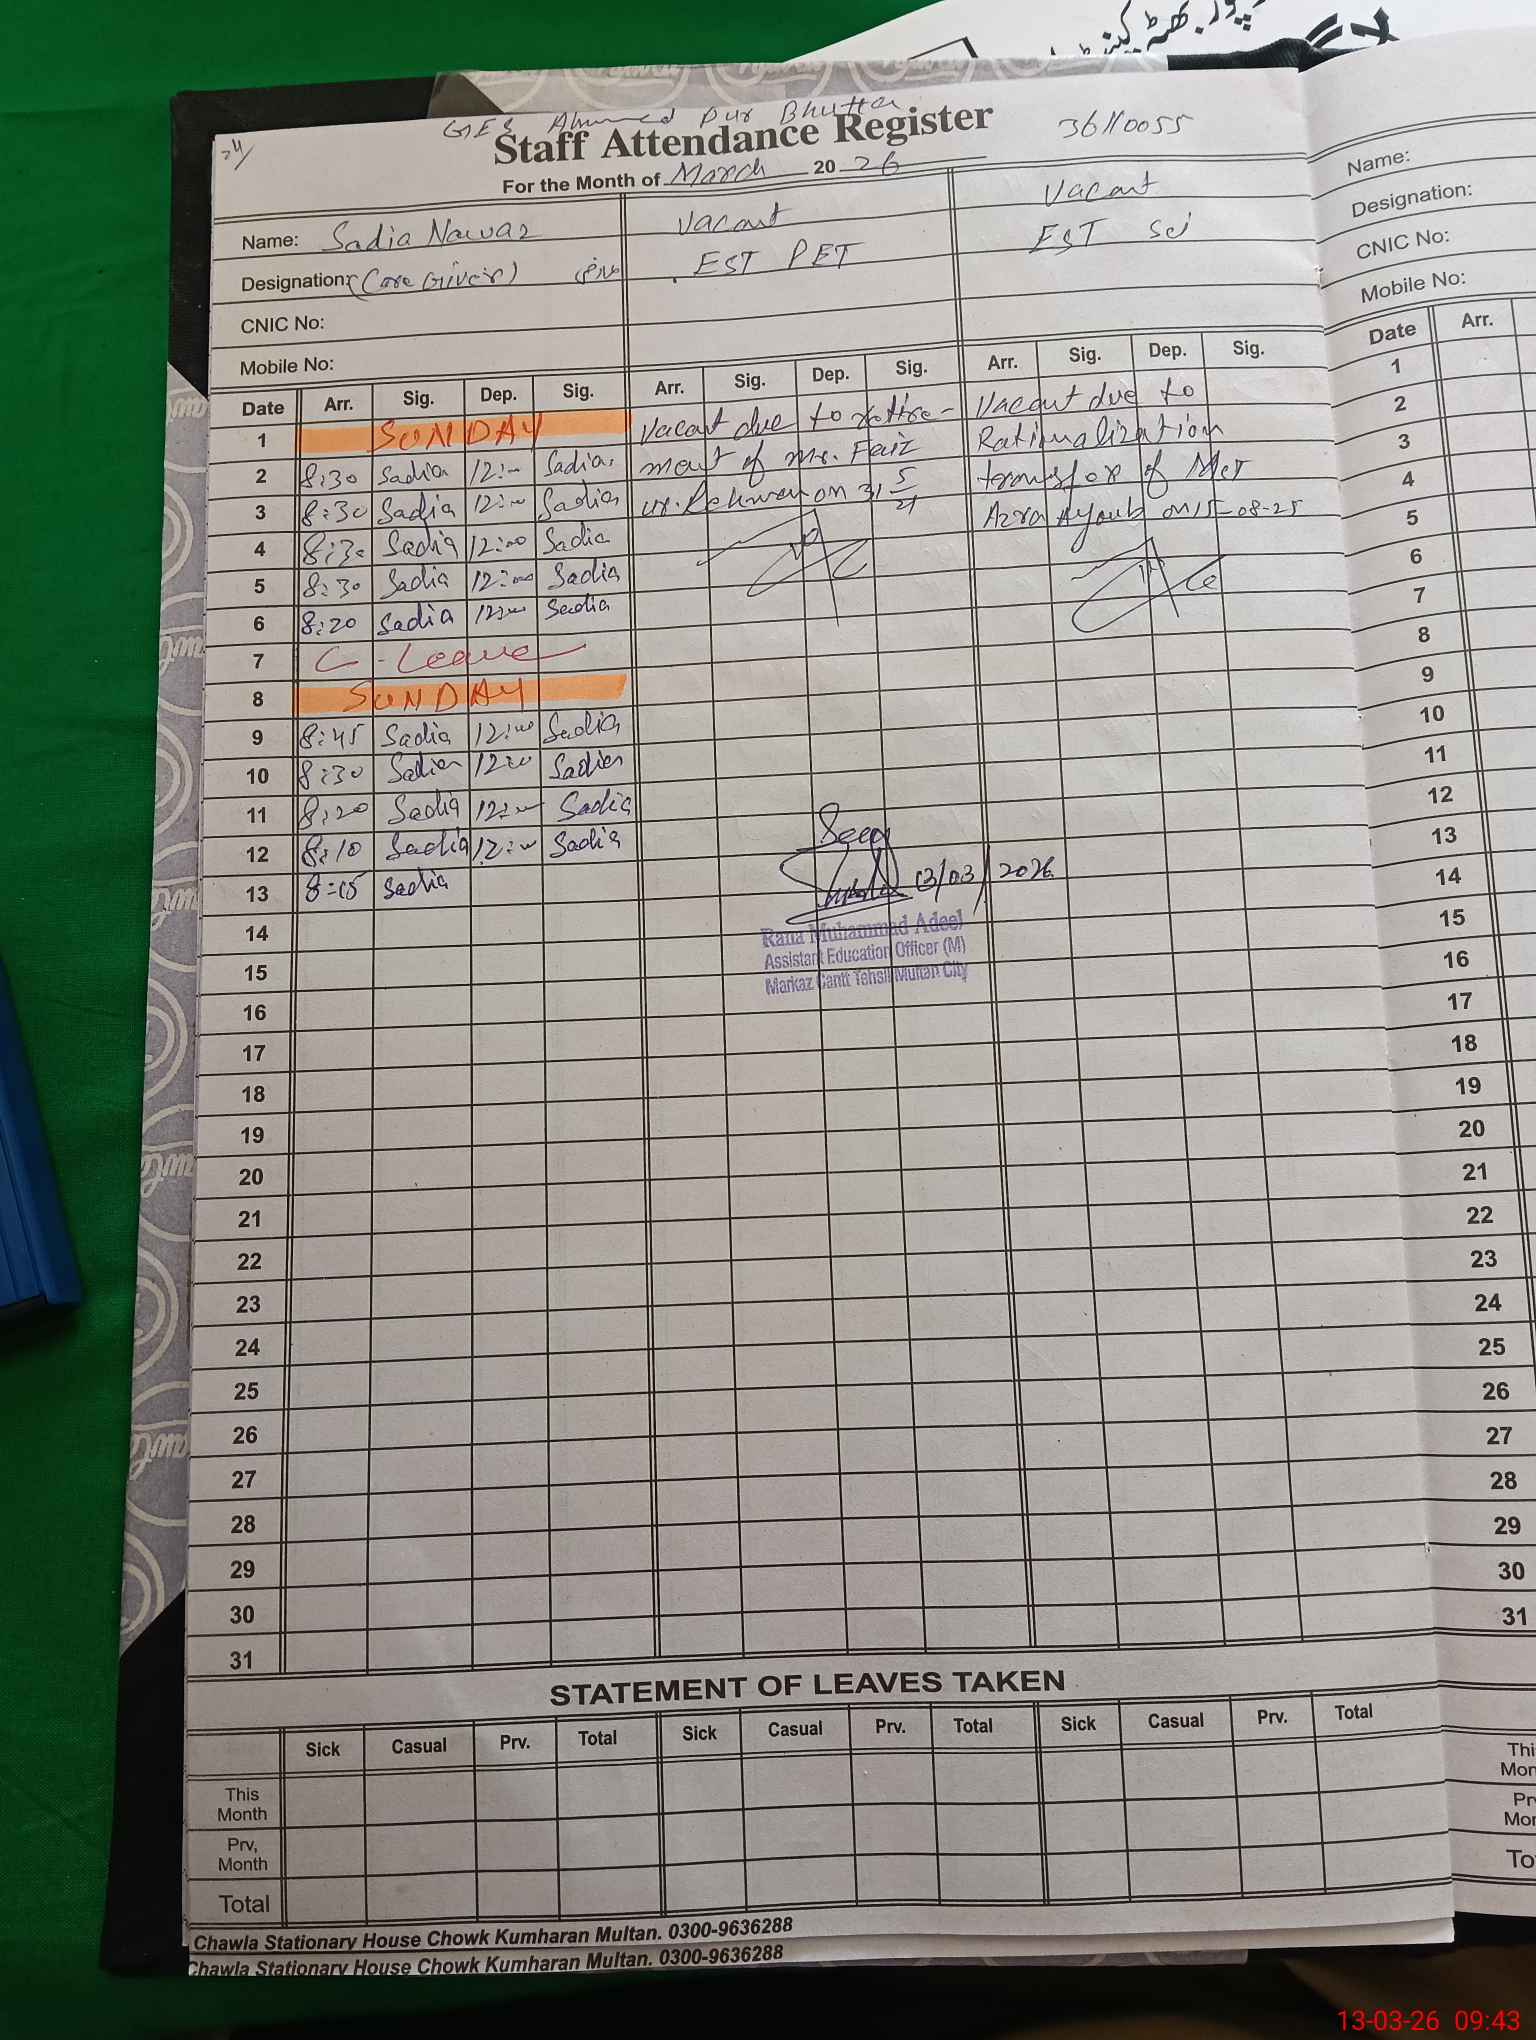 GES Ahmed Pur Bhutta
Staff Attendance Register
36110055
24/
For the Month of March 2026
Name: Sadia Nawaz
Vacant
Vacant
Designation: (Care Giver)
EST PET
EST Sci
CNIC No:
Mobile No:
Date Arr. Sig. Dep. Sig. Arr. Sig. Dep. Sig. Arr. Sig. Dep. Sig.
1 SUNDAY Vacant due to retire- Vacant due to
2 8:30 Sadia 12:00 Sadia ment of Mr. Faiz Rationalization
3 8:30 Sadia 12:00 Sadia ur. Rehman on 31 5/21 transfer of
4 8:30 Sadia 12:00 Sadia Azra Ayoub on 15-08-25
5 8:30 Sadia 12:00 Sadia
6 8:20 Sadia 12:00 Sadia
7 C-Leave
8 SUNDAY
9 8:45 Sadia 12:00 Sadia
10 8:30 Sadia 12:00 Sadia
11 8:20 Sadia 12:00 Sadia
12 8:10 Sadia 12:00 Sadia
13 8:15 Sadia
Seen
13/03/2026
Rana Muhammad Adeel
Assistant Education Officer (M)
Markaz Cantt Tehsil Multan City
14
15
16
17
18
19
20
21
22
23
24
25
26
27
28
29
30
31
STATEMENT OF LEAVES TAKEN
Sick Casual Prv. Total Sick Casual Prv. Total Sick Casual Prv. Total
This Month
Prv, Month
Total
Chawla Stationary House Chowk Kumharan Multan. 0300-9636288
Chawla Stationary House Chowk Kumharan Multan. 0300-9636288
Name:
Designation:
CNIC No:
Mobile No:
Date Arr.
1
2
3
4
5
6
7
8
9
10
11
12
13
14
15
16
17
18
19
20
21
22
23
24
25
26
27
28
29
30
31
13-03-26 09:43